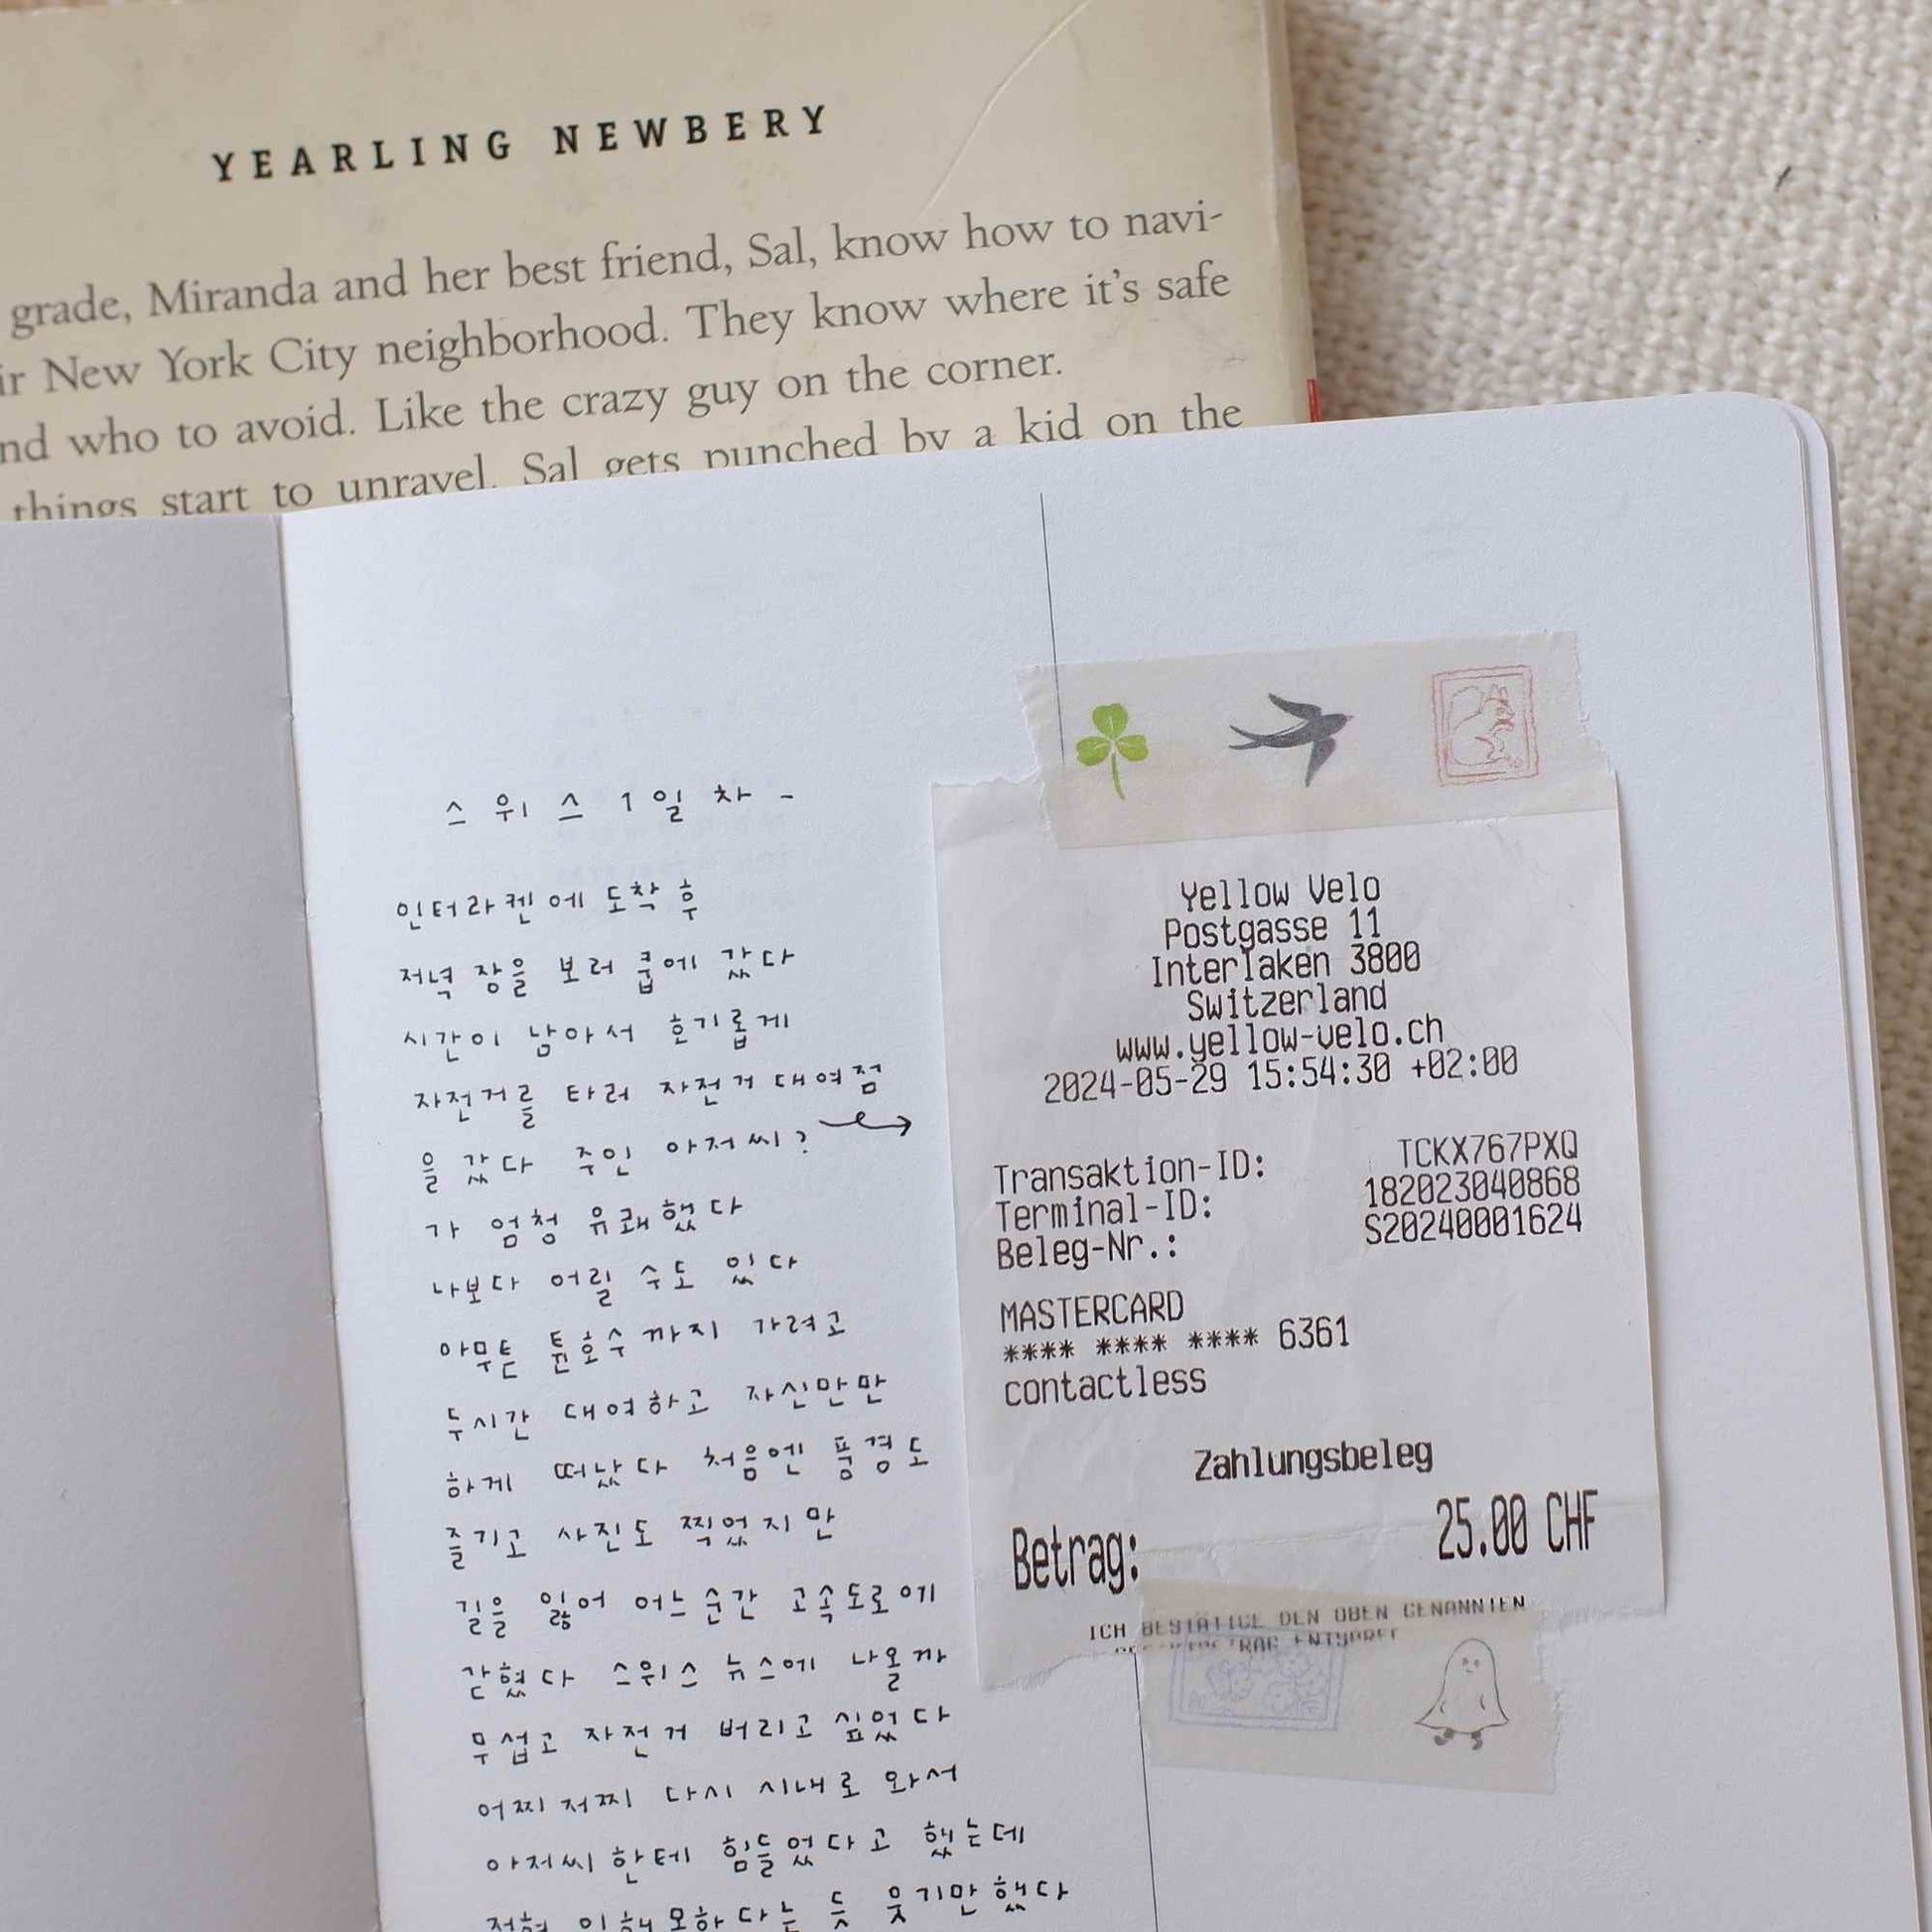 YEARLING NEWBERY
grade, Miranda and her best friend, Sal, know how to navi-
ir New York City neighborhood. They know where it's safe
nd who to avoid. Like the crazy guy on the corner.
things start to unravel. Sal gets punched by a kid on the
스위스 1일차 -
인터라켄에 도착 후
저녁 장을 보러 쿱에 갔다
시간이 남아서 호기롭게
자전거를 타러 자전거 대여점
을 갔다 주인 아저씨?
가 엄청 유쾌했다
나보다 어릴 수도 있다
아무튼 튠호수까지 가려고
두시간 대여하고 자신만만
하게 떠났다 처음엔 풍경도
즐기고 사진도 찍었지만
길을 잃어 어느순간 고속도로에
갇혔다 스위스 뉴스에 나올까
무섭고 자전거 버리고 싶었다
어찌저찌 다시 시내로 와서
아저씨한테 힘들었다고 했는데
전혀 이해 모하다는 듯 웃기만 했다
Yellow Velo
Postgasse 11
Interlaken 3800
Switzerland
www.yellow-velo.ch
2024-05-29 15:54:30 +02:00
Transaktion-ID: TCKX767PXQ
Terminal-ID: 182023040868
Beleg-Nr.: S20240001624
MASTERCARD
**** **** **** 6361
contactless
Zahlungsbeleg
Betrag: 25.00 CHF
ICH BESTÄTIGE DEN OBEN GENANNTEN